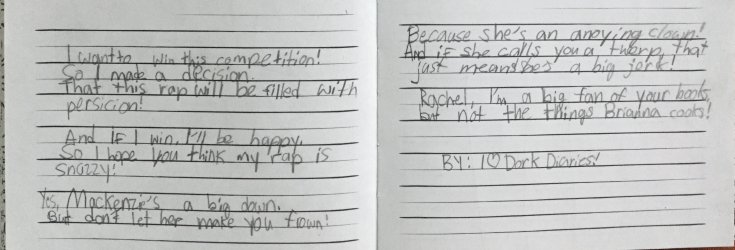 I want to win this competition!
So I made a decision.
That this rap will be filled with
persicion!
And If I win, I'll be happy.
So I hope you think my rap is
snazzy!
Yes, Mackenzie's a big clown.
But don't let her make you frown!
Because she's an anoying clown!
And if she calls you a twerp, that
just means he's a big jerk!
Rachel, I'm a big fan of your books,
but not the things Brianna cooks!
BY: I ♡ Dork Diaries!